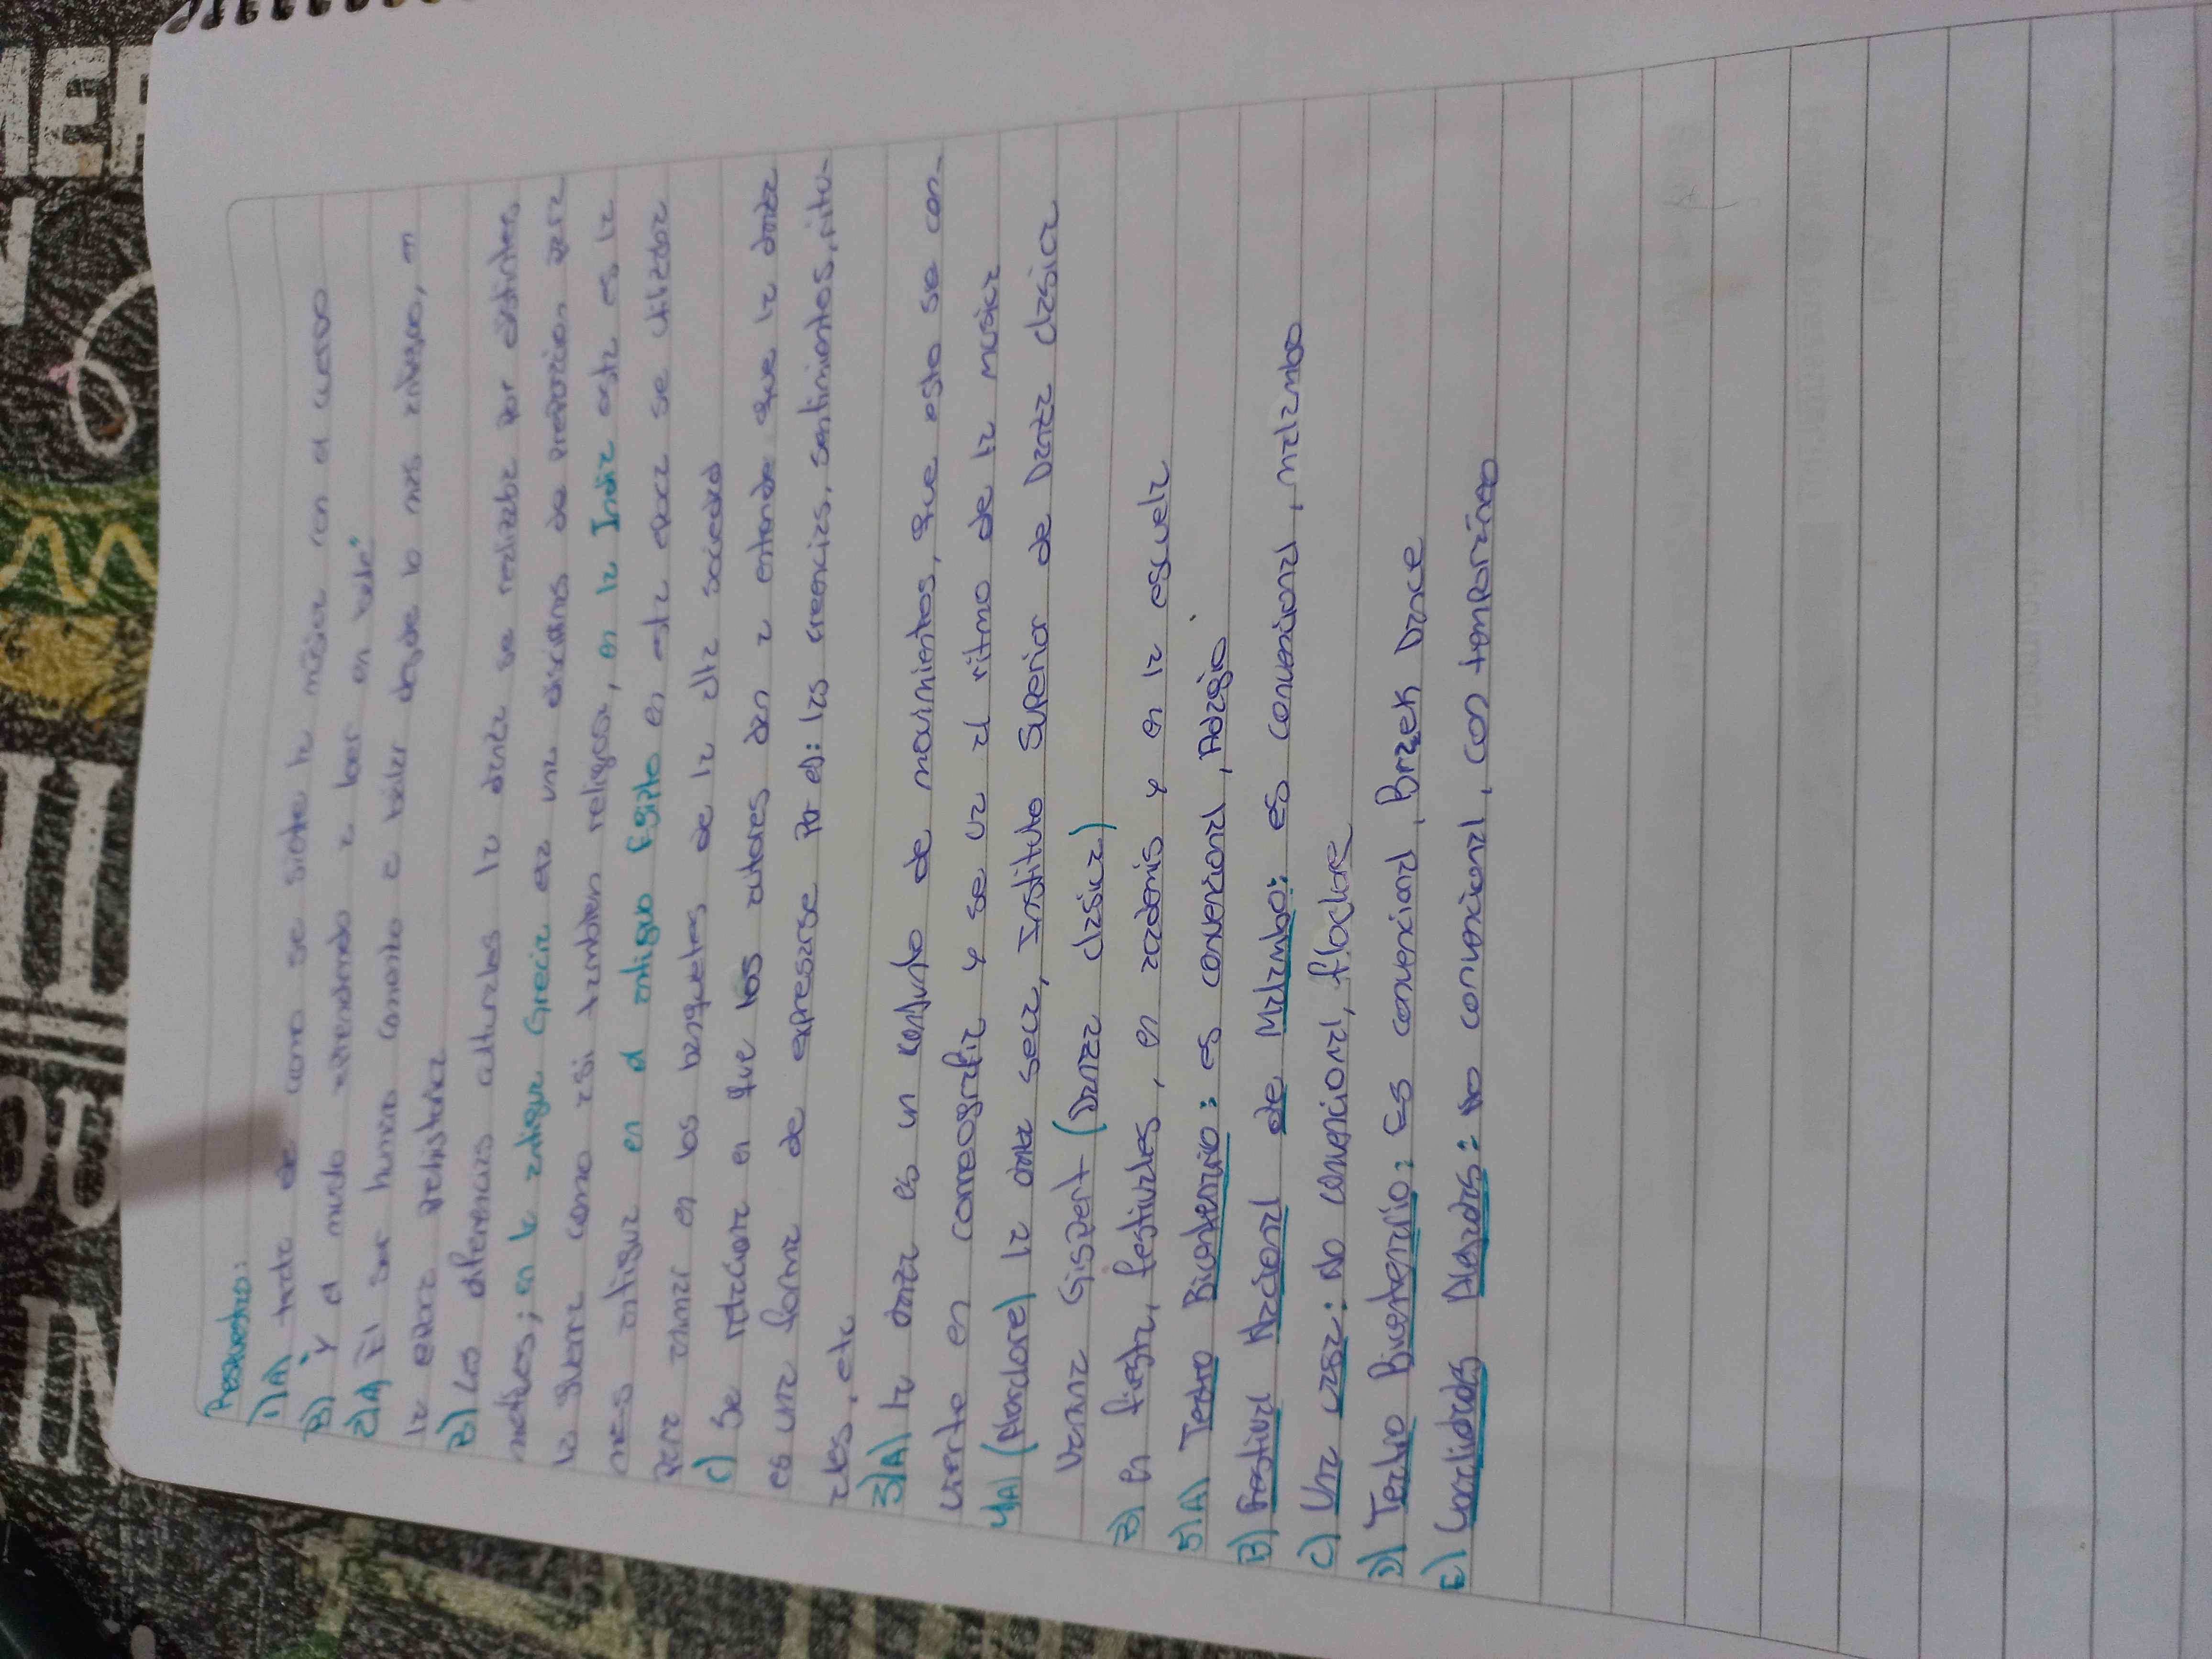 Respuestas:
1)A) trata de como se siente la música con el cuerpo
B) y el mundo aprendiendo a leer en baile"
2)A) El ser humano comenzo a bailar desde lo mas antiguo, en
la epoca prehistorica
B) Las diferencias culturales la danza se realizaba por distintos
motivos; en la antigua Grecia era una disciplina de preparacion para
la guerra como asi tambien religiosa, en la India esta es la
mas antigua en el antiguo Egipto en esta epoca se utilizaba
para animar en los banquetes de la alta sociedad
C) Se relaciona en que los autores dan a entender que la danza
es una forma de expresarse por ej: las creencias, sentimientos, ritu-
ales, etc
3)A) la danza es un conjunto de movimientos, que esto se con-
vierte en correografia y se va al ritmo de la musica
4)A) la danza seca, Instituto Superior de Danza clasica
Verana Gispert (Danza clasica)
B) en fiesta, festivales, en academis y en la escuela
5)A) Teatro Bicentenario: es convencional, Adagio
B) Festival Nacional de Malambo: es convencional, malambo
C) Una casa: No convencional, floclore
D) Teatro Bicentenario: Es convencional, Break Dance
E) No convencional, con temporáneo